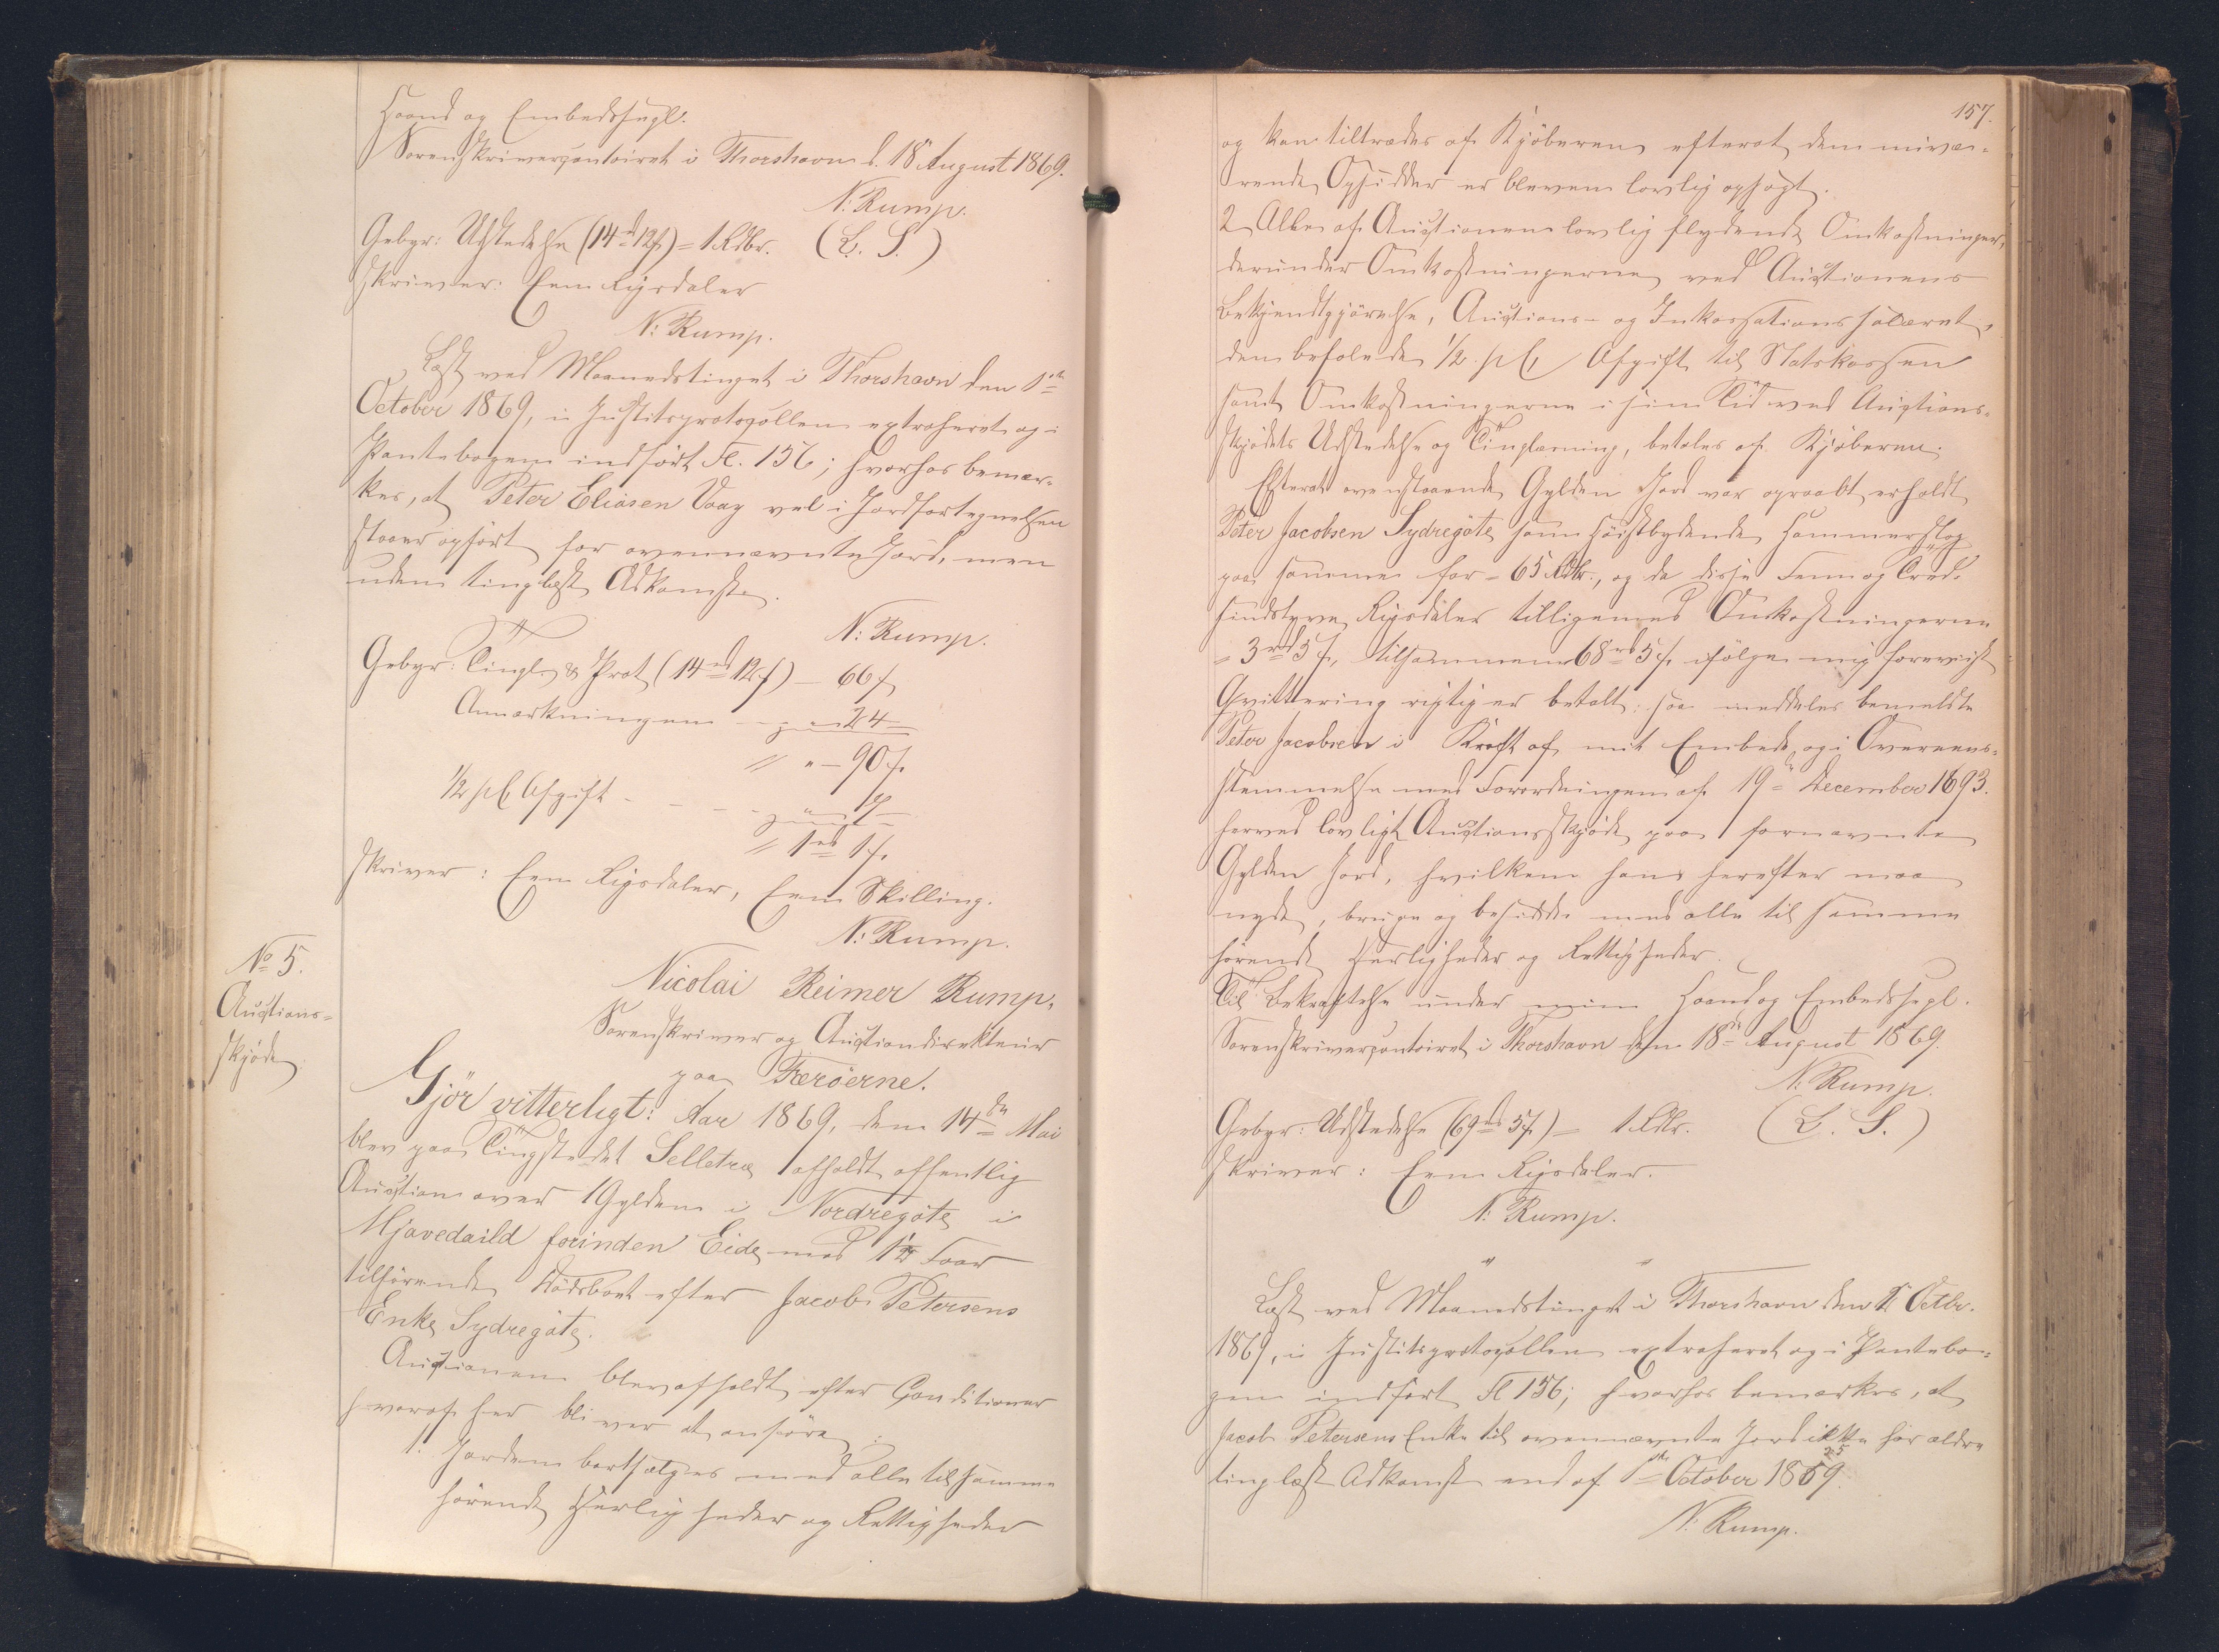 Haand og Embedssegl.
Sorenskrivercontoiret i Thorshavn d. 18 August 1869.
N: Rump.
Gebyr: Udstedelse (14rd 12s) = 1 Rdlr. (L. S.)
skriver: Een Rigsdaler
N: Rump.
Læst ved Maanedstinget i Thorshavn den 1ste
October 1869, i Justitsprotocollen extraheret og i
Pantebogen indført Fl. 156; hvorhos bemær-
kes, at Peter Eliasen Vaag vel i Jordfortegnelsen
staaer opført for ovennævnte Jord, men
uden tinglæst Adkomst.
N: Rump.
Gebyr: Tingl. & Prot (14rd 12s) – 66s
Anmærkningen – 24 –
" " – 90s.
1/2 pCt Afgift - - - 7
" 1rd 1s.
skriver: Een Rigsdaler, Een Skilling.
N: Rump.
No 5.
Auctions-
skjøde.
Nicolai Reimer Rump,
Sorenskriver og Auctionsdirekteur
paa Færöerne.
Gjör vitterligt: Aar 1869, den 14de Mai
blev paa Tingstedet Selletræ afholdt offentlig
Auction over 1 Gylden i Nordregöte i
Mjavedaild forinden Eide med Foar
tilhørende Dödsboet efter Jacob Petersens
Enke Sydregöte.
Auctionen blev afholdt efter Conditioner
hvoraf her bliver at anføre:
1. Jorden bortsælges med alle til samme
hörende Herligheder og Rettigheder
157.
og kan tiltrædes af Kjöberen efterat den nuvæ-
rende Opsidder er bleven lovlig opsagt.
2 Alle af Auctionen lovlig flydende Omkostninger,
derunder Omkostningerne ved Auctionens
Bekjendtgjörelse, Auctions- og Inkassationssalæret,
den befalede 1/2 pCt Afgift til Statskassen
samt Omkostningerne i sin Tid ved Auctions-
skjödets Udstedelse og Tinglæsning, betales af Kjöberen.
Efterat ovenstaaende Gylden Jord var opraabt erholdt
Peter Jacobsen Sydregöte som høistbydende Hammerslag
paa samme for 65 Rdlr., og da disse Fem og Tred-
sindstyve Rigsdaler tilligemed Omkostningerne
= 3rd 5s, tilsammen 68rd 5s. ifølge mig foreviist
Qvittering rigtig er betalt: saa meddeles bemeldte
Peter Jacobsen i Kraft af mit Embede og i Overeens-
stemmelse med Forordningen af 19de December 1693.
herved lovligt Auctionsskjöde paa fornævnte
Gylden Jord, hvilken han herefter maa
nyde, bruge og besidde med alle til samme
hørende Herligheder og Rettigheder.
Til Bekræftelse under min Haand og Embedssegl.
Sorenskrivercontoiret i Thorshavn den 18de August 1869.
N: Rump.
Gebyr: Udstedelse (69rd 5s) = 1 Rdlr. (L. S.)
skriver: Een Rigsdaler.
N: Rump.
" "
Læst ved Maanedstinget i Thorshavn den 1ste Octbr.
1869, i Justitsprotocollen extraheret og i Pantebo-
gen indført Fl 156; hvorhos bemærkes, at
Jacob Petersens Enke til ovennævnte Jord ikke har ældre
tinglæst Adkomst end af 1ste October 1859.
N: Rump.